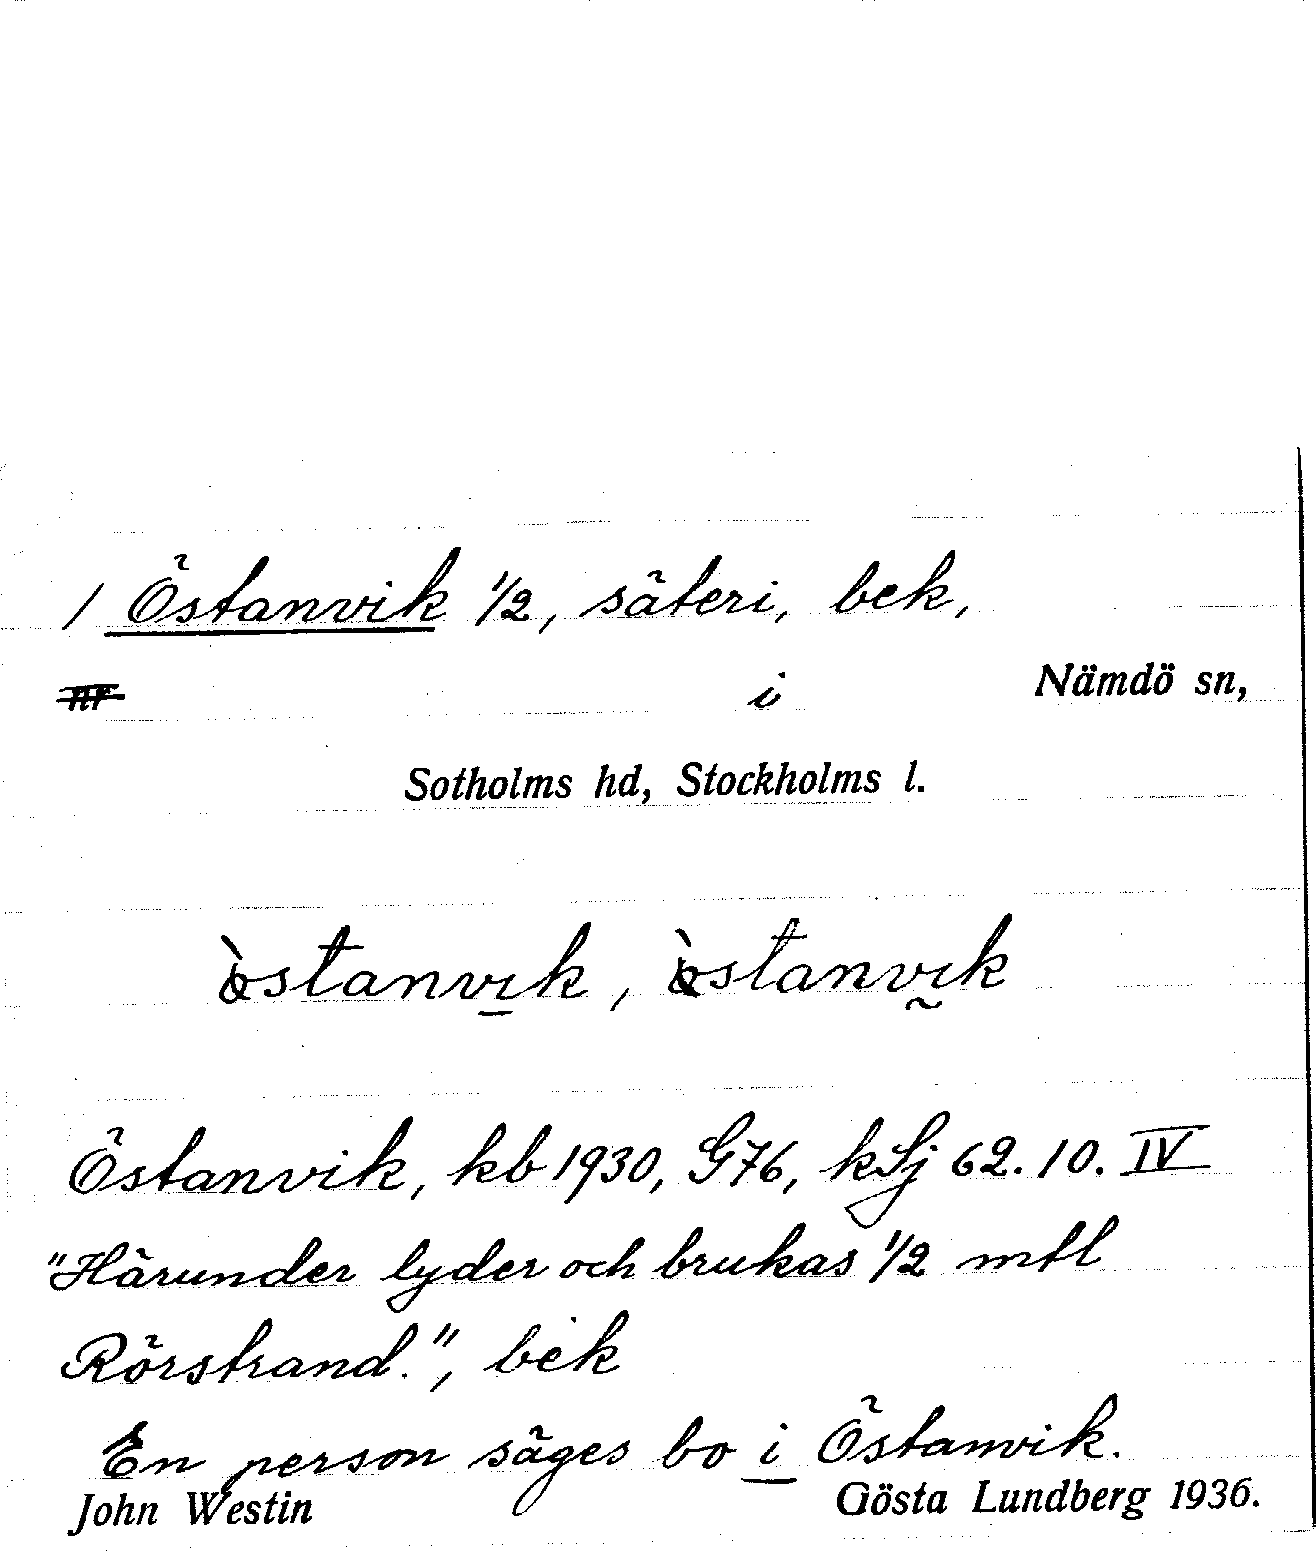 / Östanvik 1/2, säteri, bek,
i Nämdö sn,
Sotholms hd, Stockholms l.
östanvik, östanvik
Östanvik, kb 1930, G76, kSj 62.10. IV
"Härunder lyder och brukas 1/2 mtl
Rörstrand.", bek
En person säges bo i Östanvik.
John Westin Gösta Lundberg 1936.